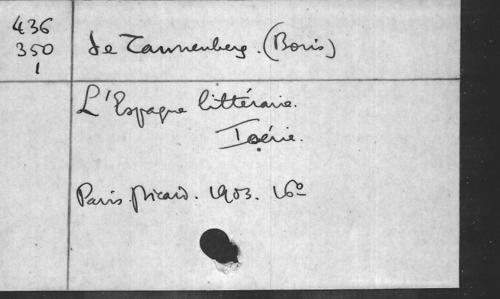 436
350
1
de Tannenberg. (Boris)
L'Espagne littéraire.
I série.
Paris. Picard. 1903. 16º